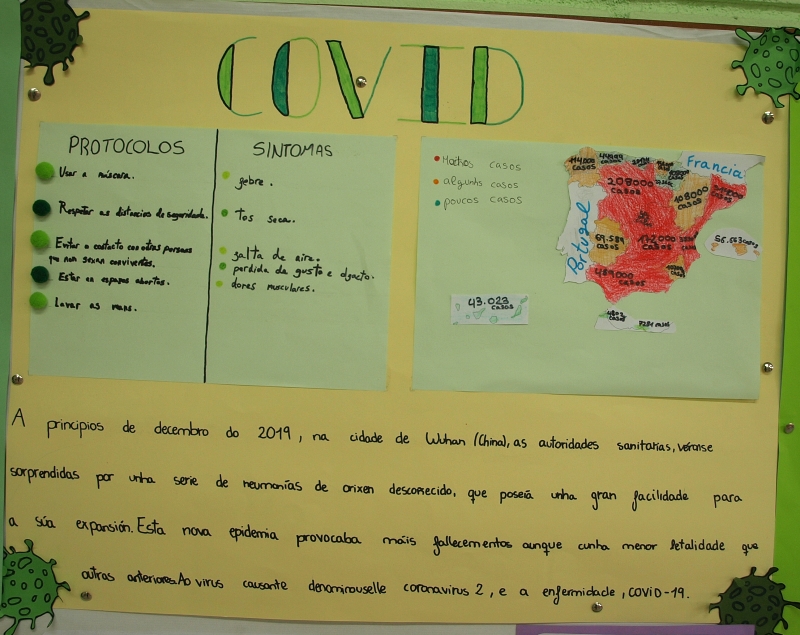 COVID
PROTOCOLOS
Usar a máscara.
Respetar as distancias de seguridade.
Evitar o contacto con outras persoas
que non sexan conviventes.
Estar en espazos abertos.
Lavar as mans.
SINTOMAS
febre.
Tos seca.
falta de aire.
perdida de gusto e olfacto.
dores musculares.
Moitos casos
algunhs casos
poucos casos
Francia
Portugal
114.000
casos
208000
casos
108000
casos
69.584
casos
172000
casos
489000
casos
56.563 casos
43.023
casos
casos
A principios de decembro do 2019, na cidade de Wuhan (China), as autoridades sanitarias, véronse
sorprendidas por unha serie de neumonías de orixen descoñecido, que poseía unha gran facilidade para
a súa expansión. Esta nova epidemia provocaba máis fallecementos aunque cunha menor letalidade que
outras anteriores. Ao virus causante denominouselle coronavirus 2, e a enfermidade, COVID-19.